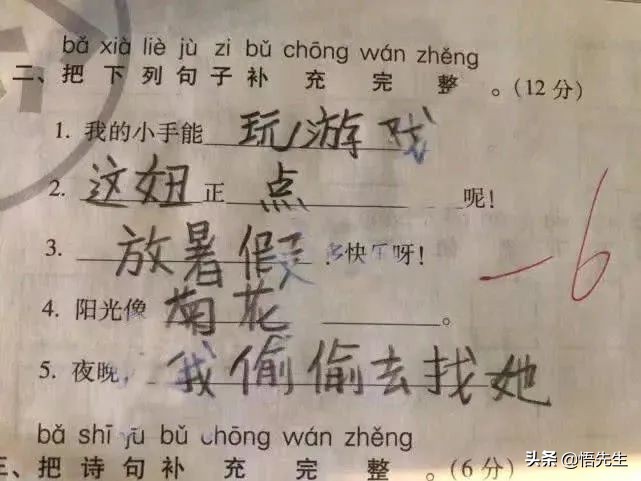 bǎ xià liè jù zi bǔ chōng wán zhěng
二、把下列句子补充完整。(12分)
1. 我的小手能 玩游戏
2. 这妞正 点 呢!
3. 放暑假 快乐呀!
4. 阳光像 菊花 。
5. 夜晚, 我偷偷去找她
-6
bǎ shī jù bǔ chōng wán zhěng
三、把诗句补充完整。(6分)
头条 @悟先生